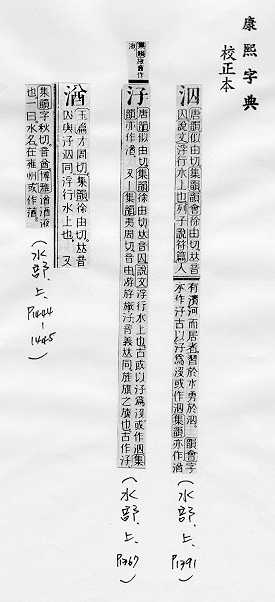 康熙字典
校正本
泅
唐韻似由切集韻韻會徐由切𠀤音
囚說文浮行水上也列子說符篇人
有濱河而居者習於水勇於泅 韻會字
本作汓古以汓爲沒或作泅集韻亦作湭
(水部.上. P1391)
汓
唐韻似由切集韻徐由切𠀤音囚說文浮行水上也古或以汓爲沒或作泅集
韻亦作湭 又集韻夷周切音由游斿旒汓音義𠀤同旌旗之旒也古作汓
(水部.上. P1367)
湭
玉篇才周切集韻徐由切𠀤音
囚與汓泅同浮行水上也 又
集韻字秋切音酋博雅湭液
也一曰水名在雍州或作
(水部.上. P1444-1445)